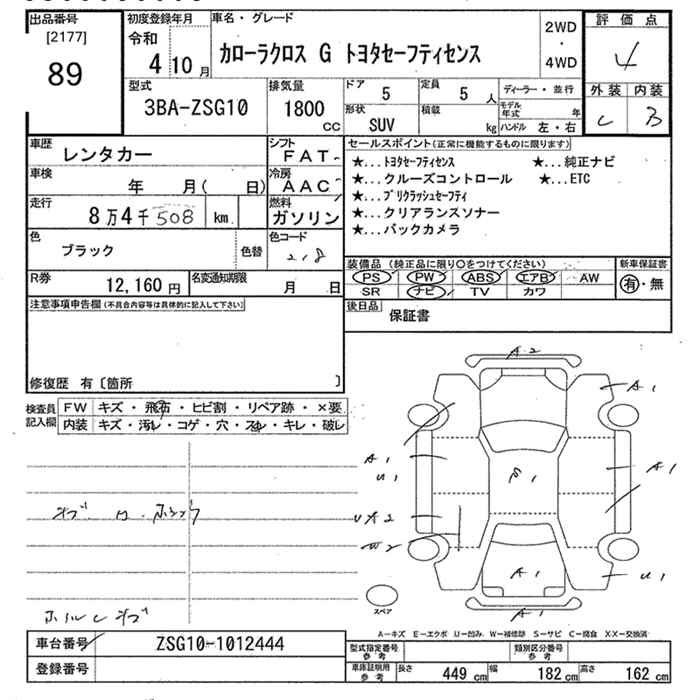 出品番号
[2177]
89
初度登録年月
令和
4 10 月
車名・グレード
カローラクロス G トヨタセーフティセンス
2WD
・
4WD
評価点
4
外装 内装
C B
型式
3BA-ZSG10
排気量
1800
CC
ドア
5
定員
5 人
形状
SUV
積載
kg
ディーラー・並行
モデル年式 年
ハンドル 左・右
車歴
レンタカー
シフト
FAT
車検
年 月( 日)
冷房
AAC
走行
8万4千508 km
燃料
ガソリン
色
ブラック
色替
色コード
218
R券
12,160 円
名変通知期限
月 日
セールスポイント(正常に機能するものに限ります)
★...トヨタセーフティセンス ★...純正ナビ
★...クルーズコントロール ★...ETC
★...プリクラッシュセーフティ
★...クリアランスソナー
★...バックカメラ
装備品 (純正品に限り○をつけてください)
PS PW ABS エアB AW
SR ナビ TV カワ
新車保証書
有・無
後日品
保証書
注意事項申告欄(不具合内容等は具体的に記入して下さい)
修復歴 有〔箇所 〕
検査員
記入欄
FW キズ・飛石・ヒビ割・リペア跡・×要
内装 キズ・汚レ・コゲ・穴・スレ・キレ・破レ
A2
A1
A1
U1
A1
A1
U1
A1
スペア
A-キズ E-エクボ U-凹み W-補修跡 S-サビ C-腐食 XX-交換済
車台番号
ZSG10-1012444
登録番号
型式指定番号
参考
類別区分番号
参考
車庫証明用
参考
長さ 449 cm 幅 182 cm 高さ 162 cm